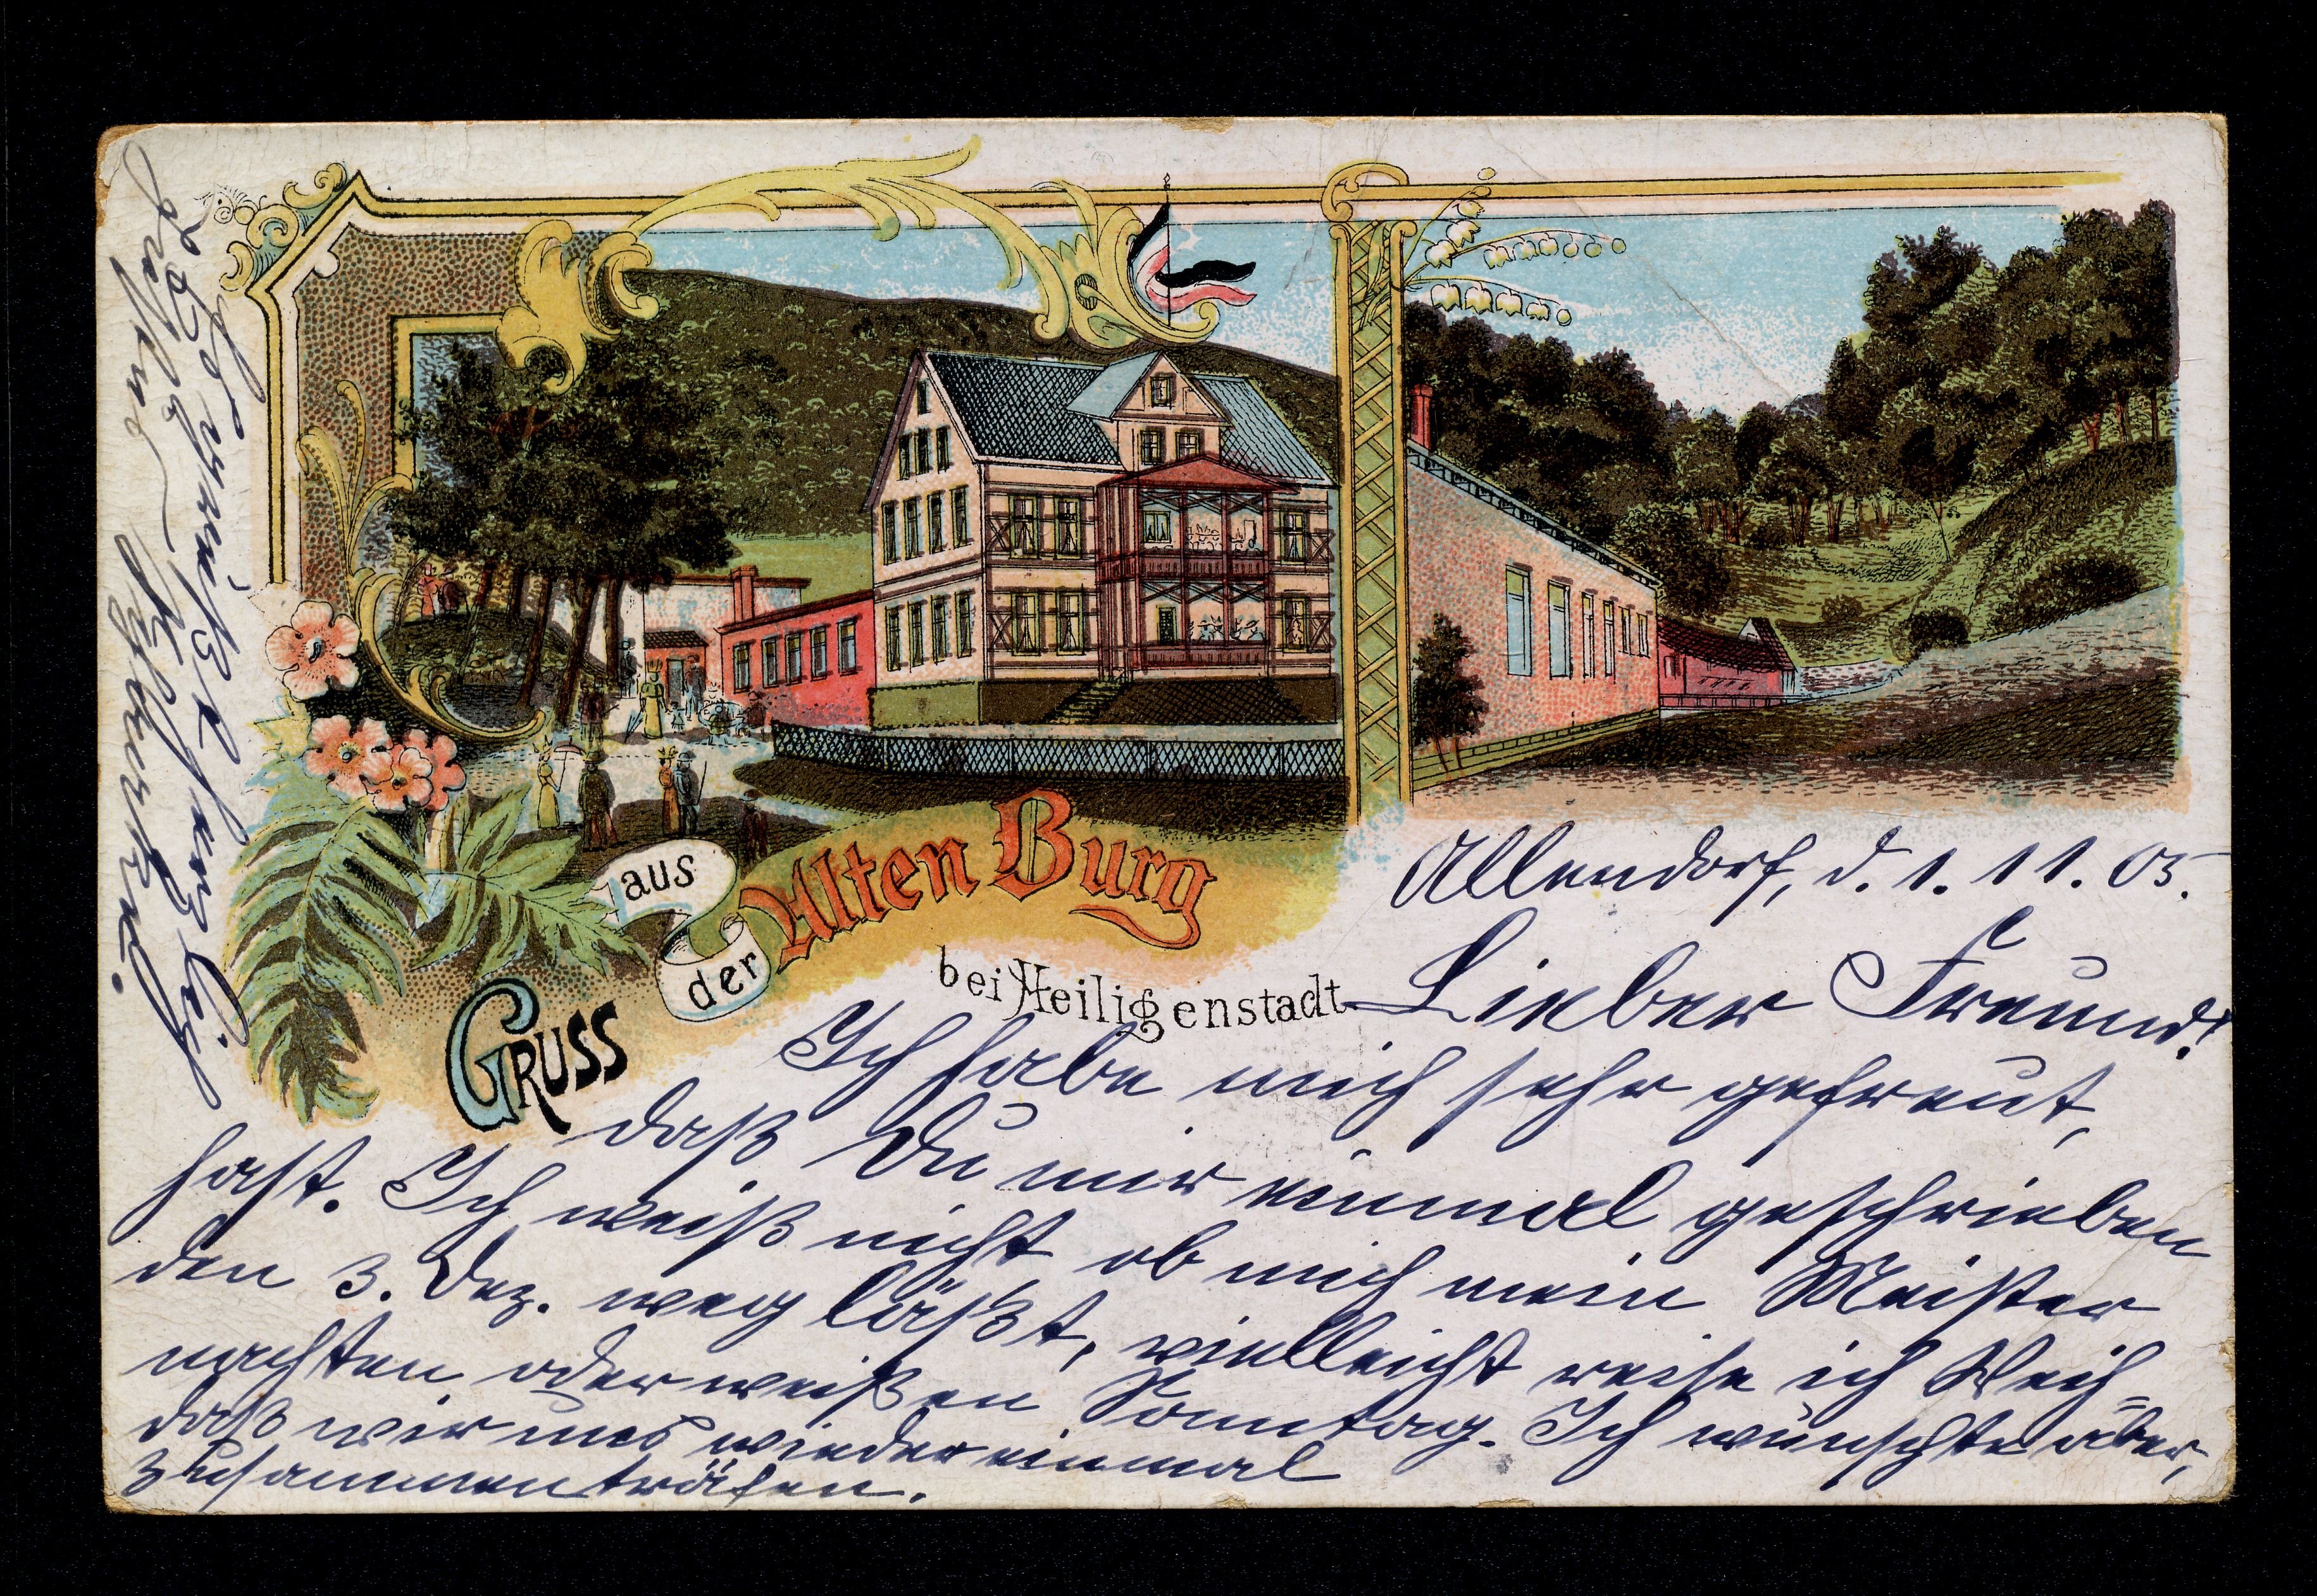 Gruss
aus
der
Alten Burg
bei Heiligenstadt
Allendorf, d. 1. 11. 05.
Lieber Freund!
Ich habe mich sehr gefreut,
daß Du mir einmal geschrieben
hast. Ich weiß nicht ob mich mein Meister
den 3. Dez. weg läßt, vielleicht reise ich Weih-
nachten oder weißen Sonntag. Ich wünschte aber,
daß wir uns wieder einmal
zusammenträfen.
Es grüßt herzlich